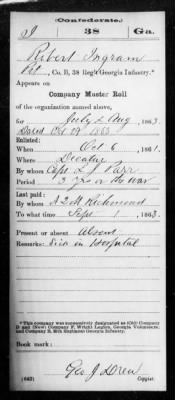 (Confederate.)
I 38 Ga.
Robert Ingram
Pvt, Co. D, 38 Reg't Georgia Infantry.*
Appears on
Company Muster Roll
of the organization named above,
for July & Aug, 1863.
Dated Oct 29 1863
Enlisted:
When Oct 6, 1861.
Where Decatur
By whom Capt L. J. Parr
Period 3 yrs or the war
Last paid:
By whom A.Q.M. Richmond
To what time Sept 1, 1863.
Present or absent Absent
Remarks: Sick in Hospital
*This company was successively designated as (Old) Company
D and (New) Company F, Wright Legion, Georgia Volunteers,
and Company D, 38th Regiment Georgia Infantry.
Book mark:
Geo. J. Drew
(642) Copyist.